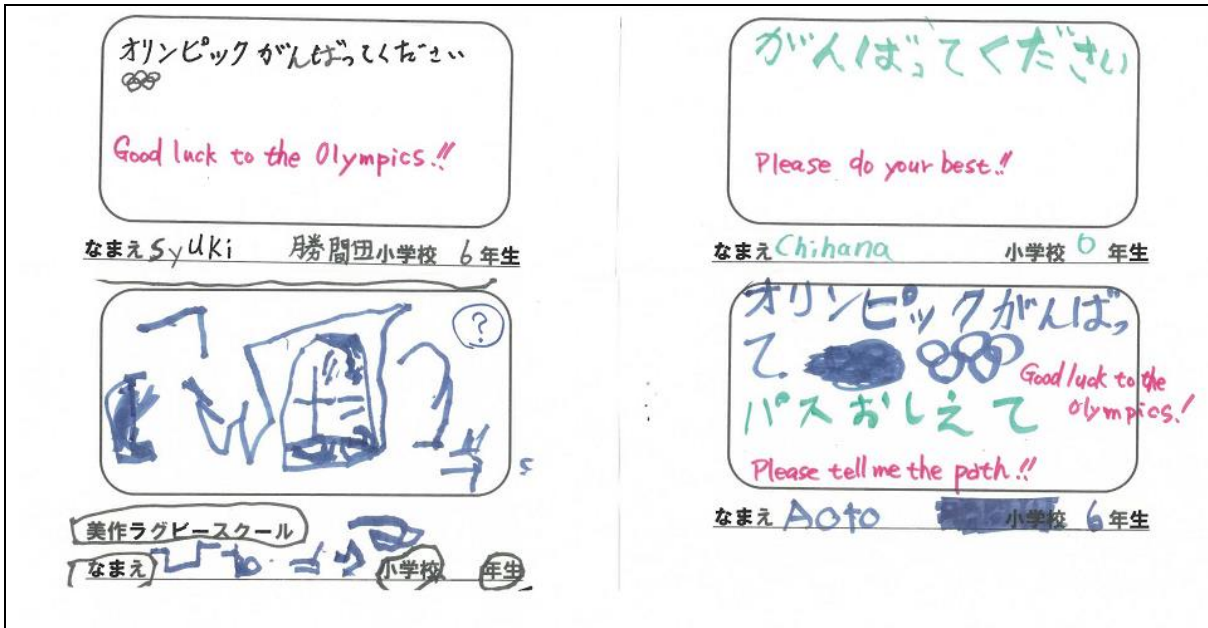 オリンピックがんばってください
Good luck to the Olympics!!
なまえ syuki 勝間田小学校 6年生
?
美作ラグビースクール
なまえ 小学校 年生
がんばってください
Please do your best!!
なまえ Chihana 小学校 6年生
オリンピックがんばっ
て
Good luck to the
Olympics!
パスおしえて
Please tell me the path!!
なまえ Aoto 小学校 6年生